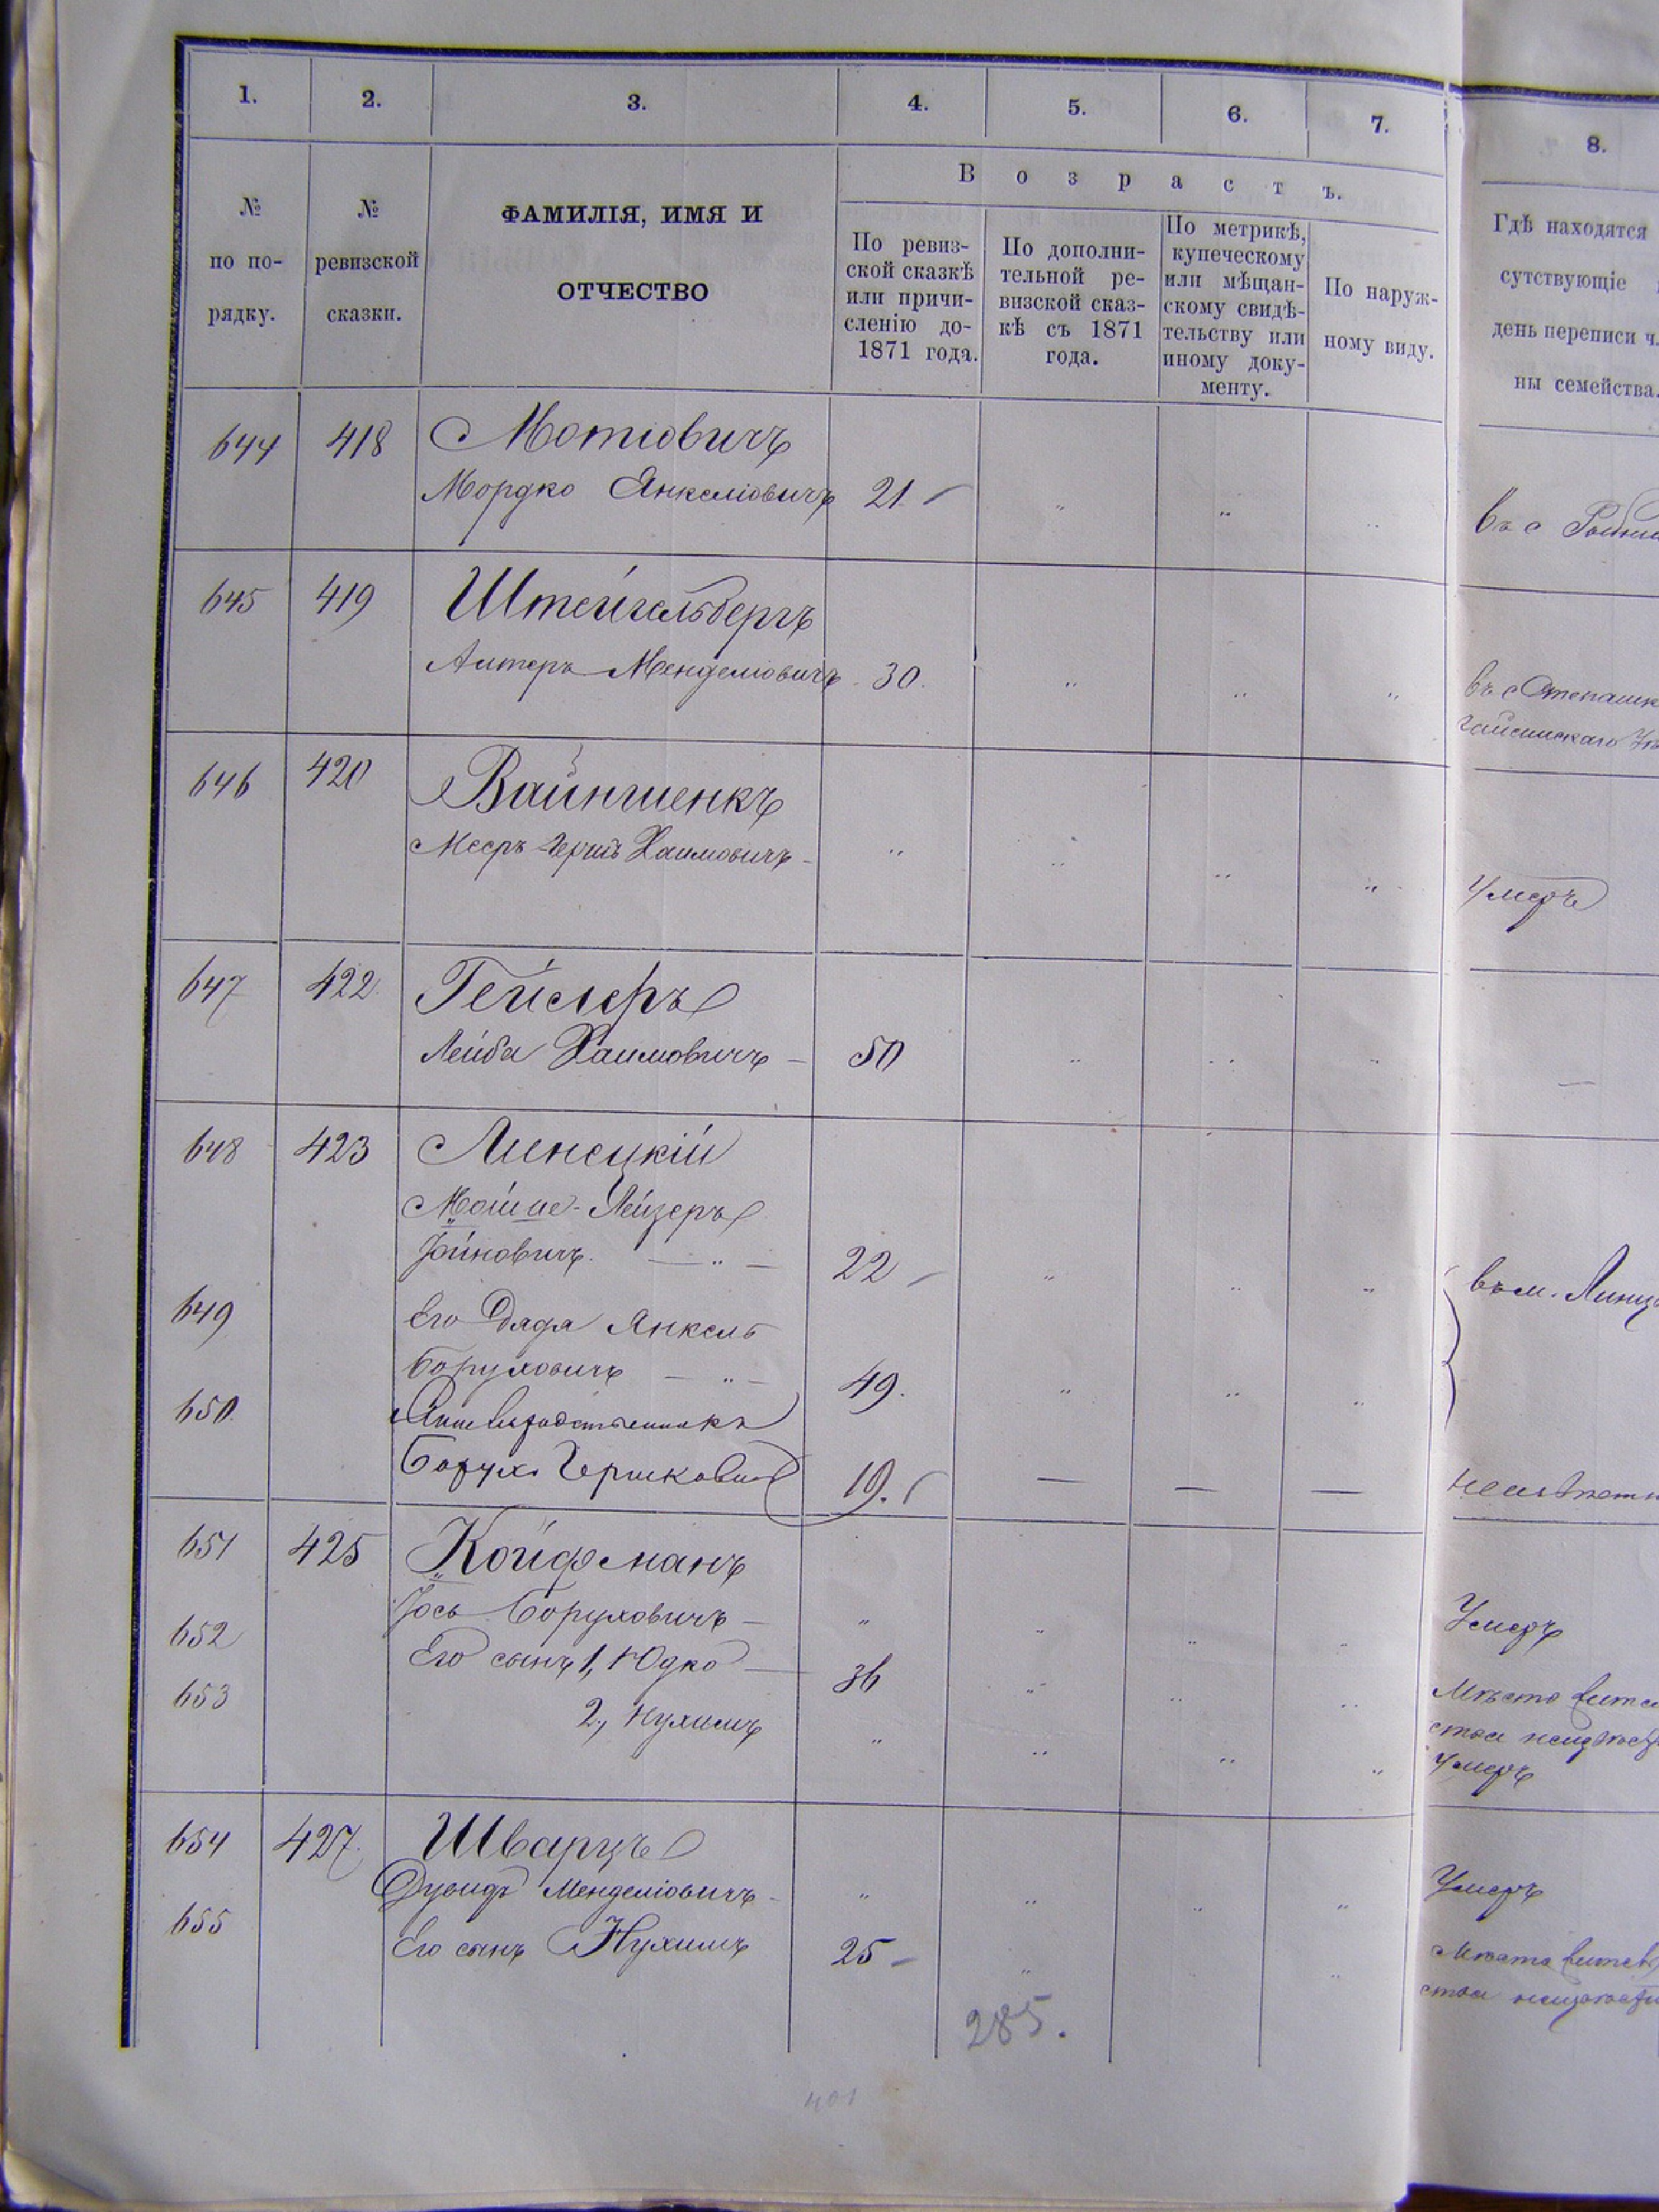 1. 2. 3. 4. 5. 6. 7. 8.
№ по по-рядку.
№ ревизской сказки.
ФАМИЛІЯ, ИМЯ И ОТЧЕСТВО
Возрастъ.
По ревиз-
ской сказкѣ
или причи-
сленію до-
1871 года.
По дополни-
тельной ре-
визской сказ-
кѣ съ 1871
года.
По метрикѣ,
купеческому
или мѣщан-
скому свидѣ-
тельству или
иному доку-
менту.
По наруж-
ному виду.
Гдѣ находятся
сутствующіе
день переписи ч
ны семейства.
644 418 Мотіовичъ
Мордко Янкеліовичъ 21 " " " въ с
645 419 Штейгельбергъ
Алтеръ Менделіовичъ 30. " " " въ с Степашк
гайсинскаго
646 420 Вайншенкъ
Мееръ Гершъ Хаимовичъ " " " " Умеръ
647 422. Гейслеръ
Лейба Хаимовичъ — 50 " " " —
648 423 Линецкій
Мойше-Лейзеръ
Іойновичъ. — " — 22 " " " въ м. Линц
649 Его Дядя Янкель
Боруховичъ — " — 49. " " "
650.
Борухъ Гершковичъ 19. — — —
651 425 Койфманъ
Іось Боруховичъ — " " " " Умеръ
652 Его сынъ 1, Юдко — 36 " " " Мѣсто
653 2, Нухимъ " " " " Умеръ
654 427. Шварцъ
Дувидъ Менделіовичъ " " " " Умеръ
655 Его сынъ Нухимъ 25 — " " " Мѣсто
285.
401